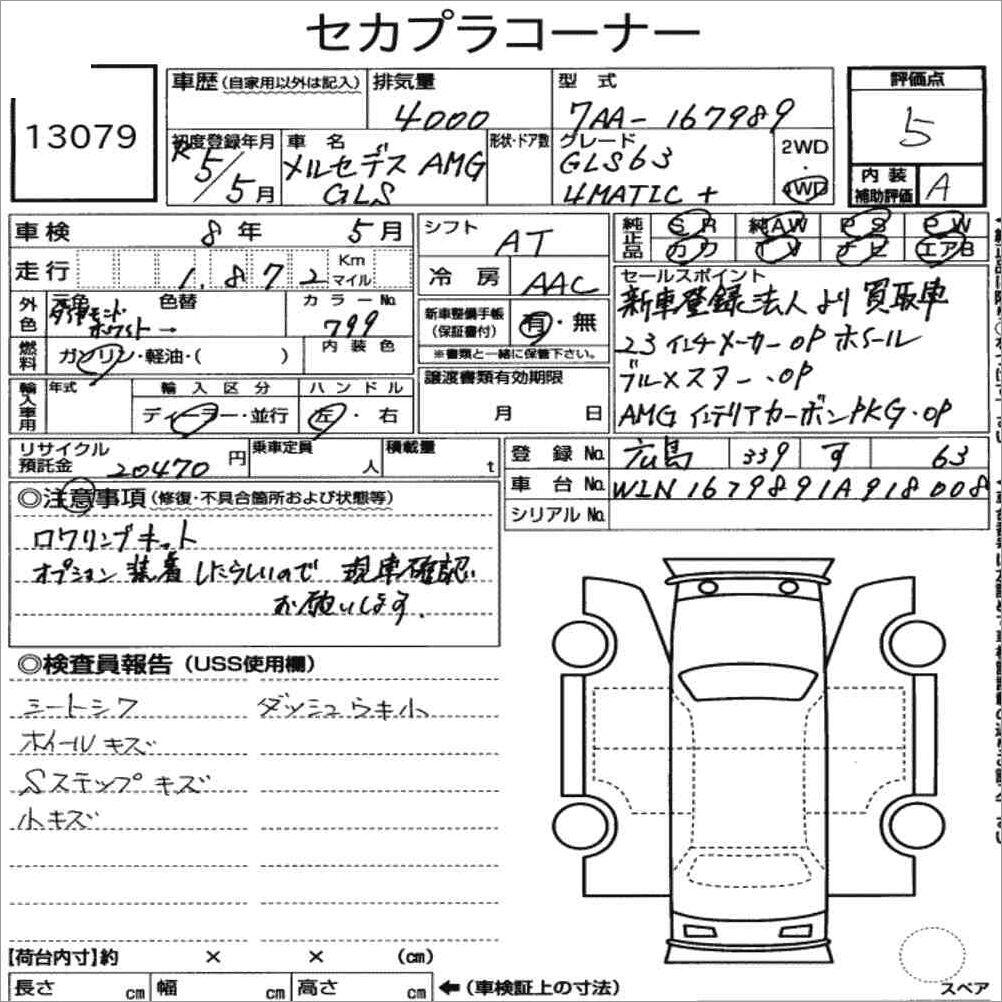 セカプラコーナー
13079
車歴 (自家用以外は記入)
排気量
4000
型式
7AA-167989
評価点
5
初度登録年月
R5/5月
車名
メルセデス AMG
GLS
形状・ドア数
グレード
GLS63
4MATIC +
2WD
・
4WD
内装
補助評価
A
車検 8年 5月
シフト
AT
純正品
SR 純AW PS PW
カワ TV ナビ エアB
走行 1.872 Km マイル
冷房
AAC
セールスポイント
新車登録法人より買取車
23インチメーカーOPホイール
ブルメスター・OP
AMGインテリアカーボンPKG・OP
外色
元色
ダイヤモンド
ホワイト →
色替
カラーNo.
799
新車整備手帳
(保証書付)
有・無
※書類と一緒に保管下さい。
燃料
ガソリン・軽油・( )
内装色
譲渡書類有効期限
月 日
輸入車用
年式
輸入区分
ディーラー・並行
ハンドル
左・右
リサイクル
預託金
20470円
乗車定員
人
積載量
t
登録No. 広島 339 す 63
車台No. W1N1679891A918008
シリアルNo.
◎注意事項 (修復・不具合箇所および状態等)
ロワリングキット
オプション装着したらしいので 現車確認
お願いします.
◎検査員報告 (USS使用欄)
シートシワ
ダッシュウキ小
ホイールキズ
Sステップキズ
小キズ
【荷台内寸】約 × × (cm)
長さ cm 幅 cm 高さ cm ←(車検証上の寸法)
スペア